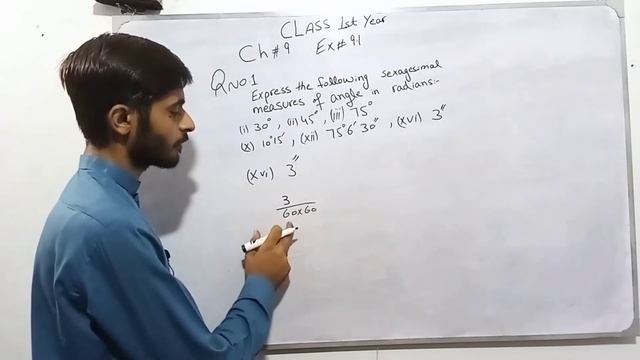 CLASS 1st Year
Ch # 9 Ex # 9.1
Q No 1 Express the following sexagesimal
measures of angle in radians:-
(i) 30°, (ii) 45°, (iii) 75°
(x) 10°15', (xii) 75°6'30", (xvi) 3"
(xvi) 3"
3
60x60